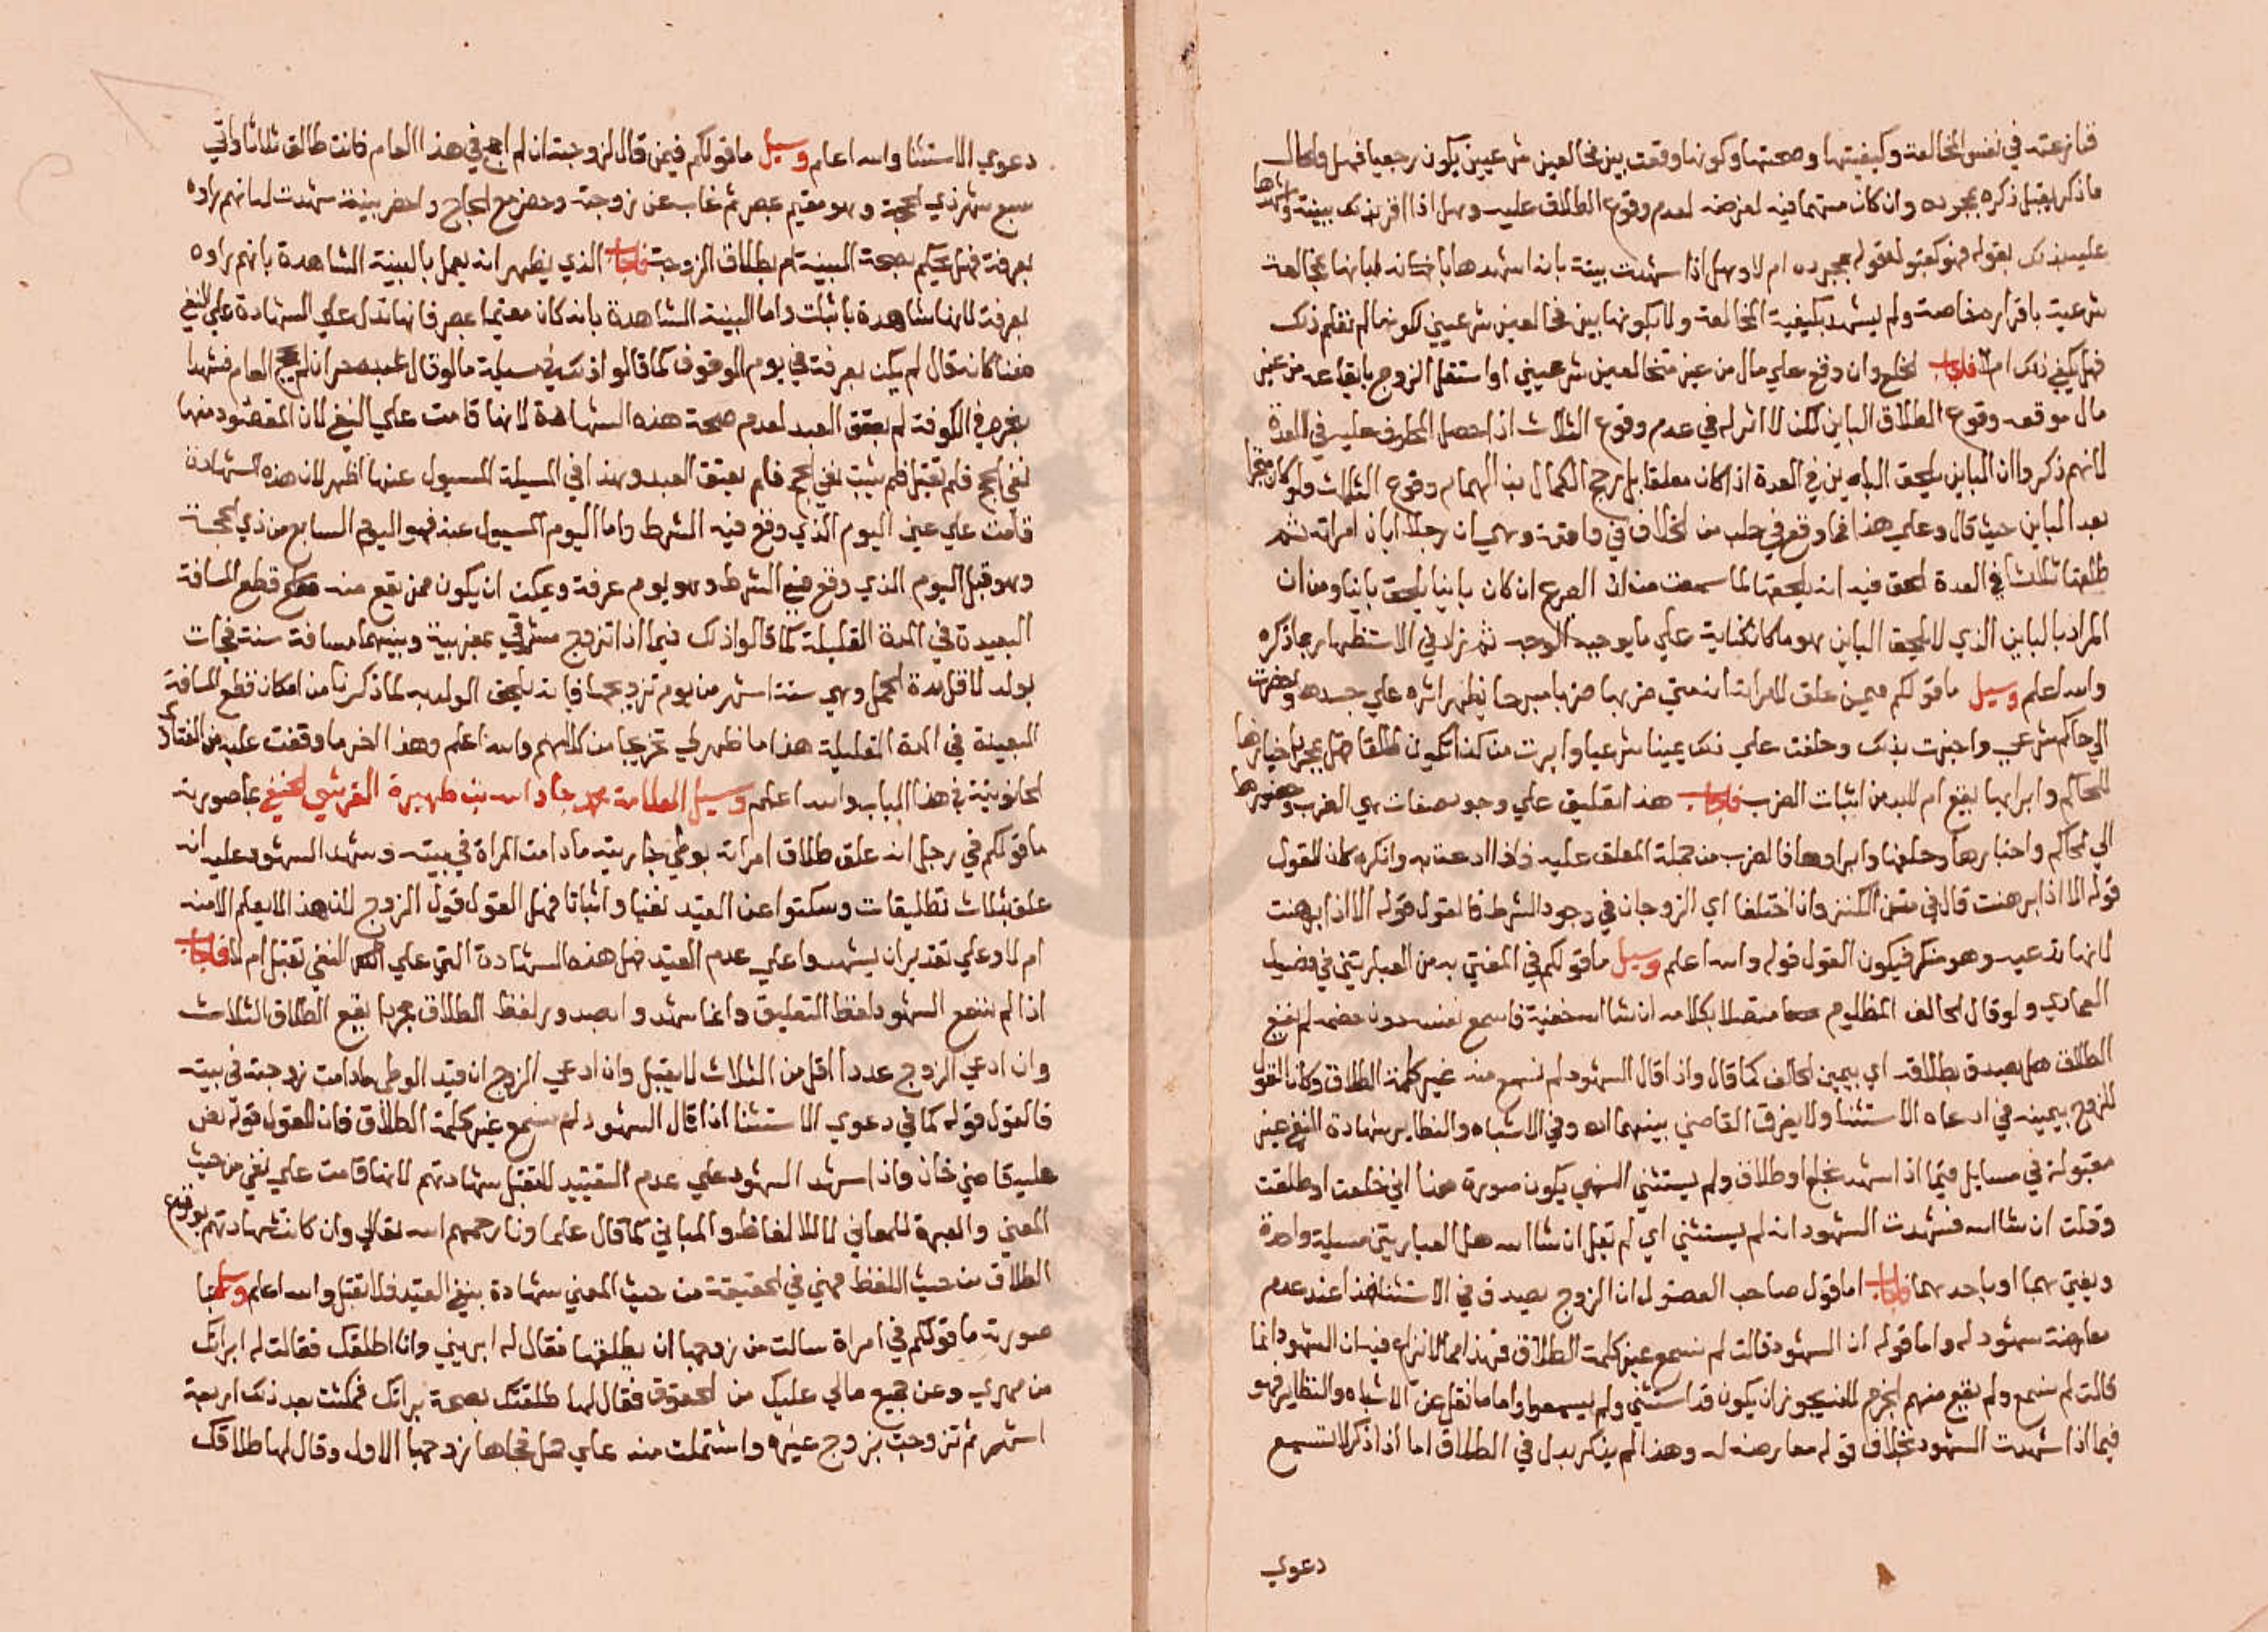 فنازعته في نفس المخالعة وكيفيتها وصحتها وكونها وقعت بين مخالعين شرعيين يكون رجعيا فهل والحال
ما ذكر يقبل ذكره بمجرده وان كان متهما فيه لغرضه لعدم وقوع الطلاق عليه وهل اذا اقر بذلك ببينة واشهدها
عليه بذلك بقوله فهو كقبو لقوله بمجرده ام لا وهل اذا شهدت بينة بانه اشهدها بانه طبانها بمخالعة
شرعية باقراره مفاصة ولم يشهد بكيفية المخالعة ولا بكونها بين مخالعين شرعيين لكونها لم تعلم ذلك
فهل يكفي ذلك ام لا فاجاب الخلع وان وقع على مال من غير متخالعين شرعيين او استقل الزوج بايقاعه من غير
مال موقعه وقوع الطلاق الباين لكن لا اثر له في عدم وقوع الثلاث اذا حصل المحلوف عليه في العدة
لانهم ذكروا ان الباين يلحق الباين في العدة اذا كان معلقا بل رجح الكمال بن الهمام وقوع الثلاث ولو كان منجزا
بعد الباين حيث قال وعلى هذا فما وقع في حلب من الخلاف في واقعة وهي ان رجلا ابان امراته ثم
طلقها ثلاثا في العدة الحق فيه انه يلحقها لما سمعت من ان الصريح ان كان باينا يلحق باينا ومن ان
المراد بالباين الذي لا يلحق الباين هو ما كان كناية على ما يوجبه الوجه ثم زاد في الاستظهار بما ذكره
والله اعلم وسيل ما قولكم فيمن علق لامراته انه متى ضربها ضربا مبرحا يظهر اثره على جسدها وحضرت
الى حاكم شرعي واخبرت بذلك وحلفت على ذلك يمينا شرعيا وابرت من كذا تكون طالقا فهل بمجرد اخبارها
للحاكم وابرايها يقع ام لا بد من اثبات الضرب فاجاب هذا تعليق على وجود صفات هي الضرب وحضورها
الى الحاكم واخبارها وحلفها وابراوها فالضرب من جملة المعلق عليه فاذا ادعت به وانكره كان القول
قوله الا اذا برهنت قال في متن الكنز وان اختلفا اي الزوجان في وجود الشرط فالقول قوله الا اذا برهنت
لانها تدعيه وهو منكر فيكون القول قوله والله اعلم وسيل ما قولكم في المفتى به من العبارتين في فصول
العمادي ولو قال الحالف المظلوم متصلا بكلامه ان شا الله خفية فاسمع نفسه دون خصمه لم يقع
الطلاق هل يصدق بطلاقه اي بيمين الحالف كما قال واذا قال الشهود لم نسمع منه غير كلمة الطلاق وكان القول
للزوج بيمينه في ادعاه الاستثنا ولا يفرق القاضي بينهما اه وفي الاشباه والنظاير شهادة النفي غير
مقبولة في مسايل فيما اذا شهد بخلع او طلاق ولم يستثني الشهي يكون صورة هذا اني خلعت او طلقت
وقلت ان شا الله فشهدت الشهود انه لم يستثني اي لم تقل ان شا الله هل العبارتين مسيلة واحدة
ويفتي بهما او باحدهما فاجاب اما قول صاحب الفصول ان الزوج يصدق في الاستثنا فهذا عند عدم
معارضة شهود له واما قوله ان الشهود قالت لم نسمع غير كلمة الطلاق فهذا مما لا نزاع فيه ان الشهود انما
قالت لم نسمع ولم يقع منهم الجزم لانه يجوز ان يكون قد استثنى ولم يسمعوا واما ما نقل عن الاشباه والنظاير فهو
فيما اذا شهدت الشهود بخلاف قوله معارضة له وهذا لم يذكر بدل في الطلاق اما اذا ذكر لا تسمع
دعوي
دعوي الاستثنا والله اعلم وسيل ما قولكم فيمن قال لزوجته ان لم احج في هذا العام فانت طالق ثلاثا واتى
سبع شهر ذي الحجة وهو مقيم بمصر ثم غاب عن زوجته وحضر مع الحجاج واحضر بينة شهدت له انهم راوه
بعرفة فهل يحكم بصحة البينة ام بطلاق الزوجة فاجاب الذي يظهر انه يعمل بالبينة الشاهدة بانهم راوه
بعرفة لانها شاهدة باثبات واما البينة الشاهدة بانه كان مقيما بمصر فانها تدل على الشهادة على النفي
معنا كانه قال لم يكن بعرفة في يوم الوقوف كما قالوا ذلك في مسيلة ما لو قال لعبده حر ان لم يحج العام فشهدا
بنحره في الكوفة لم يعتق العبد لعدم صحة هذه الشهادة لانها قامت على النفي لان المقصود منها
نفي الحج فلم تقبل فلم يثبت نفي الحج فلم يعتق العبد وهذا في المسيلة المسيول عنها اظهر لان هذه الشهادة
قامت على عين اليوم الذي وقع فيه الشرط واما اليوم المسيول عنه فهو اليوم السابع من ذي الحجة
وهو قبل اليوم الذي وقع فيه الشرط وهو يوم عرفة ويمكن ان يكون ممن يقع منه قطع المسافة
البعيدة في المدة القليلة كما قالوا ذلك فيما اذا تزوج مشرقي بمغربية وبينهما مسافة سنة فجات
بولد لاقل مدة الحمل وهي ستة اشهر من يوم تزوجها فانه يلحق الولد به لما ذكرنا من امكان قطع المسافة
البعيدة في المدة القليلة هذا ما ظهر لي تخريجا من كلامهم والله اعلم وهذا اخر ما وقفت عليه من الفتاوي
الحانوتية في هذا الباب والله اعلم وسيل العلامة محمد جاد الله بن ظهيرة القرشي الحنفي بما صورته
ما قولكم في رجل انه علق طلاق امراته بوطي جاريته ما دامت المراة في بيته وشهد الشهود عليه انه
علق بثلاث تطليقات وسكتوا عن القيد نفيا واثباتا فهل القول قول الزوج لان هذا لا يعلم الا منه
ام لا وعلى تقدير ان يشهدوا على عدم القيد فهل هذه الشهادة التي على النفي تقبل ام لا فاجاب
اذا لم نسمع الشهود لفظ التعليق وانما شهدوا بصدور لفظ الطلاق مجردا يقع الطلاق الثلاث
وان ادعى الزوج عددا اقل من الثلاث لا يقبل وان ادعى الزوج ان قيد الوطي ما دامت زوجته في بيته
فالقول قوله كما في دعوي الاستثنا اذا قال الشهود لم نسمع غير كلمة الطلاق فان القول قوله نص
عليه قاضي خان واذا شهد الشهود على عدم التقييد لا تقبل شهادتهم لانها قامت على نفي من حيث
المعنى والعبرة للمعاني لا للالفاظ والمباني كما قال علماونا رحمهم الله تعالى وان كانت شهادتهم بوقوع
الطلاق من حيث اللفظ فهي في الحقيقة من حيث المعنى شهادة بنفي القيد فلا تقبل والله اعلم وسيل بما
صورته ما قولكم في امراة سالت من زوجها ان يطلقها فقال له ابريني وانا اطلقك فقالت له ابراتك
من مهري وعن جميع مالي عليك من الحقوق فقال لها طلقتك بصحة براتك فمكثت بعد ذلك اربعة
اشهر ثم تزوجت بزوج غيره واشتملت منه على حمل فجاها زوجها الاول وقال لها طلاقك